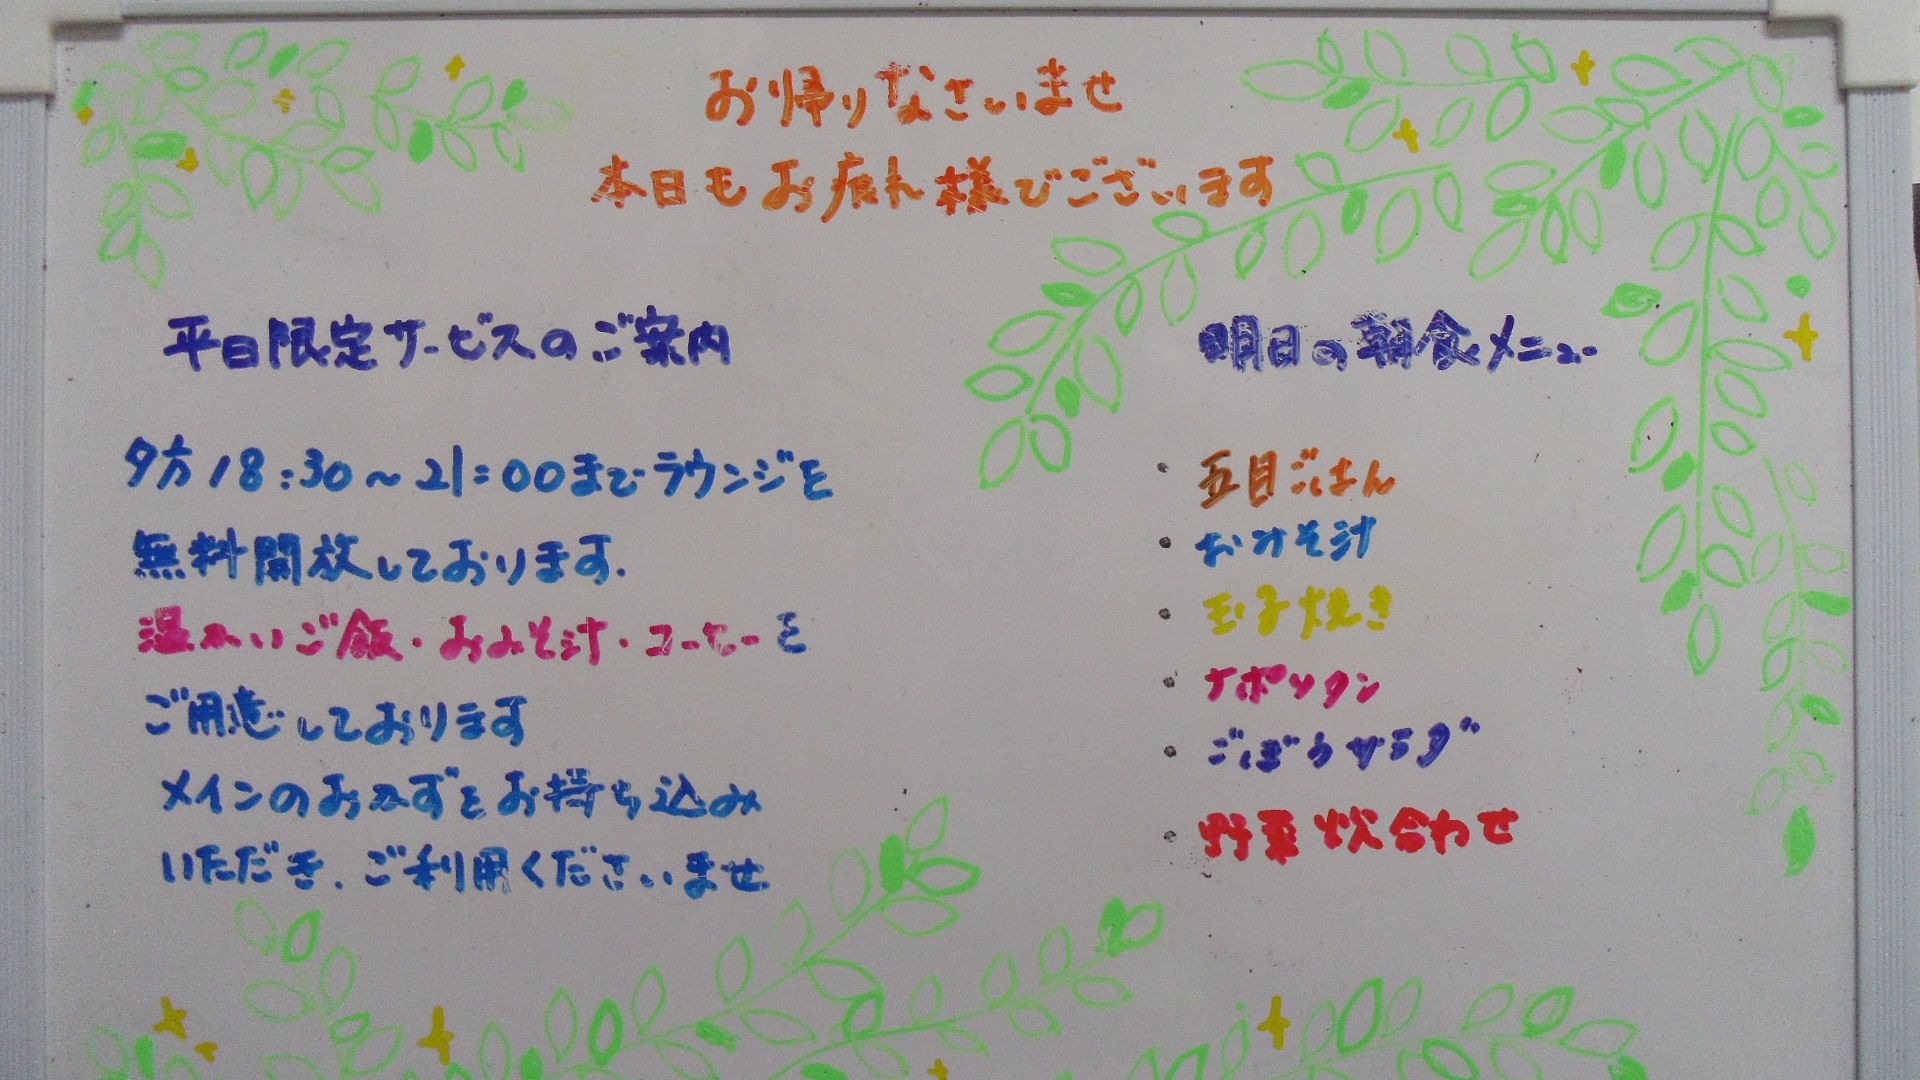 お帰りなさいませ
本日もお疲れ様でございます
平日限定サービスのご案内
夕方18:30～21:00までラウンジを
無料開放しております.
温かいご飯・おみそ汁・コーヒーを
ご用意しております
メインのおかずをお持ち込み
いただき、ご利用くださいませ
明日の朝食メニュー
・五目ごはん
・おみそ汁
・玉子焼き
・ナポリタン
・ごぼうサラダ
・野菜炊合わせ